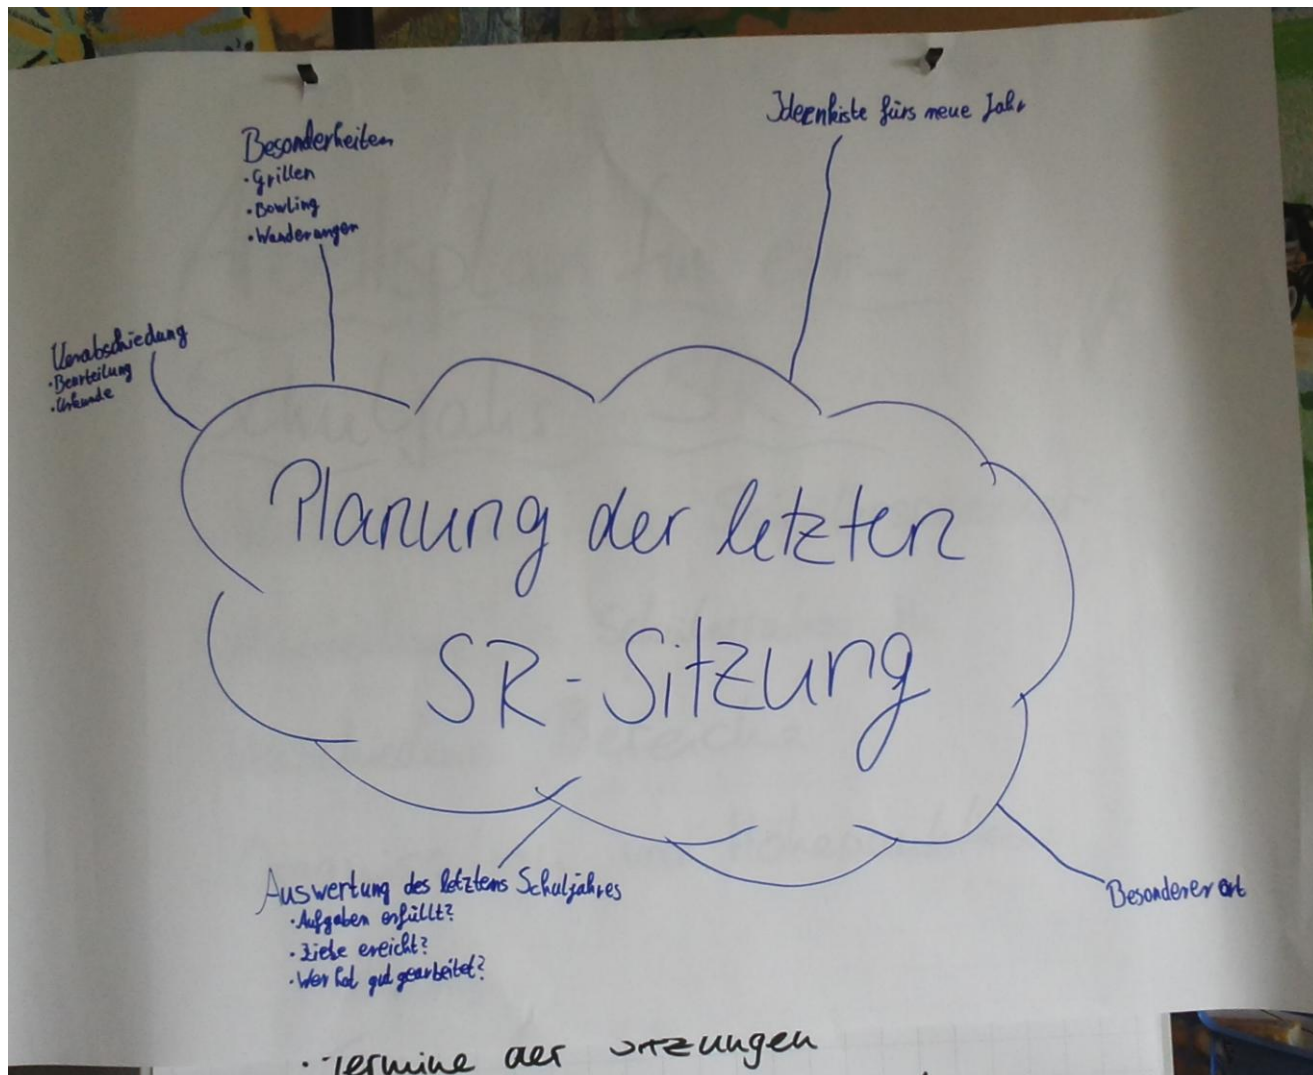 Besonderheiten
• Grillen
• Bowling
• Wanderungen
Ideenkiste fürs neue Jahr
Verabschiedung
• Beurteilung
• Urkunde
Planung der letzten
SR-Sitzung
Auswertung des letztens Schuljahres
• Aufgaben erfüllt?
• Ziele ereicht?
• Wer hat gut gearbeitet?
Besonderer ort
• Termine der Sitzungen